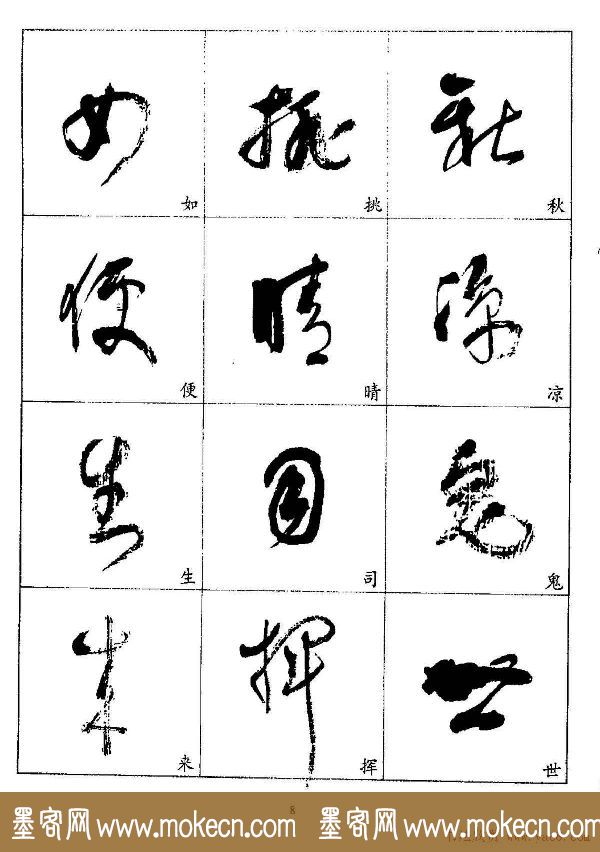 如 挑 秋
便 晴 凉
生 司 鬼
来 挥 世
8
墨客网 www.mokecn.com 墨客网 www.mokecn.com